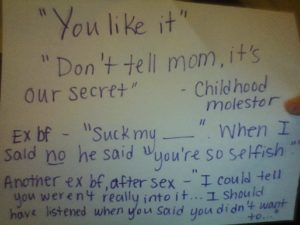 "You like it"
"Don't tell mom, it's
our secret" - Childhood
molestor
Ex bf - "Suck my ___". When I
said no he said "you're so selfish."
Another ex bf, after sex - "I could tell
you weren't really into it... I should
have listened when you said you didn't want
to..."